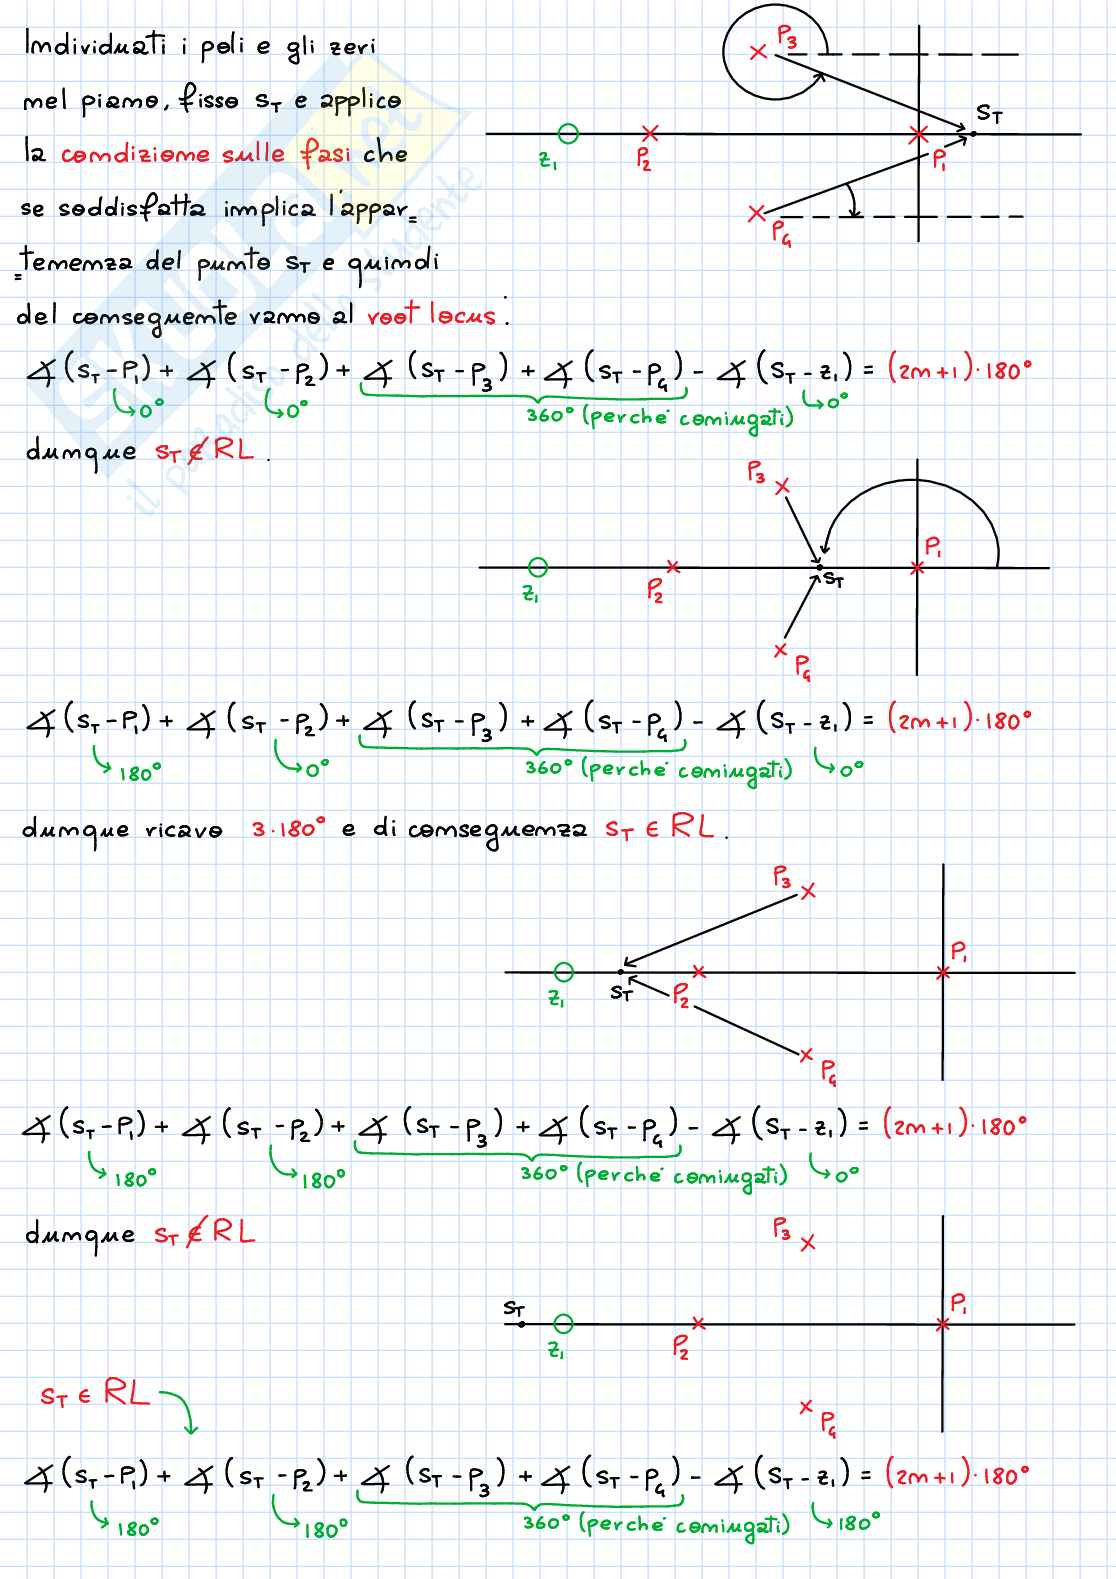 Individuati i poli e gli zeri
nel piano, fisso sT e applico
la condizione sulle fasi che
se soddisfatta implica l'appar=
=tenenza del punto sT e quindi
del conseguente vanno al root locus:
P3
sT
z1
P2
P1
P4
∡(sT-P1) + ∡(sT-P2) + ∡(sT-P3) + ∡(sT-P4) - ∡(sT-z1) = (2m+1)·180°
0°
0°
360° (perché coniugati)
0°
dunque sT ∉ RL.
P3
P1
z1
P2
sT
P4
∡(sT-P1) + ∡(sT-P2) + ∡(sT-P3) + ∡(sT-P4) - ∡(sT-z1) = (2m+1)·180°
180°
0°
360° (perché coniugati)
0°
dunque ricavo 3·180° e di conseguenza sT ∈ RL.
P3
P1
z1
sT
P2
P4
∡(sT-P1) + ∡(sT-P2) + ∡(sT-P3) + ∡(sT-P4) - ∡(sT-z1) = (2m+1)·180°
180°
180°
360° (perché coniugati)
0°
dunque sT ∉ RL
P3
sT
P1
z1
P2
sT ∈ RL
P4
∡(sT-P1) + ∡(sT-P2) + ∡(sT-P3) + ∡(sT-P4) - ∡(sT-z1) = (2m+1)·180°
180°
180°
360° (perché coniugati)
180°